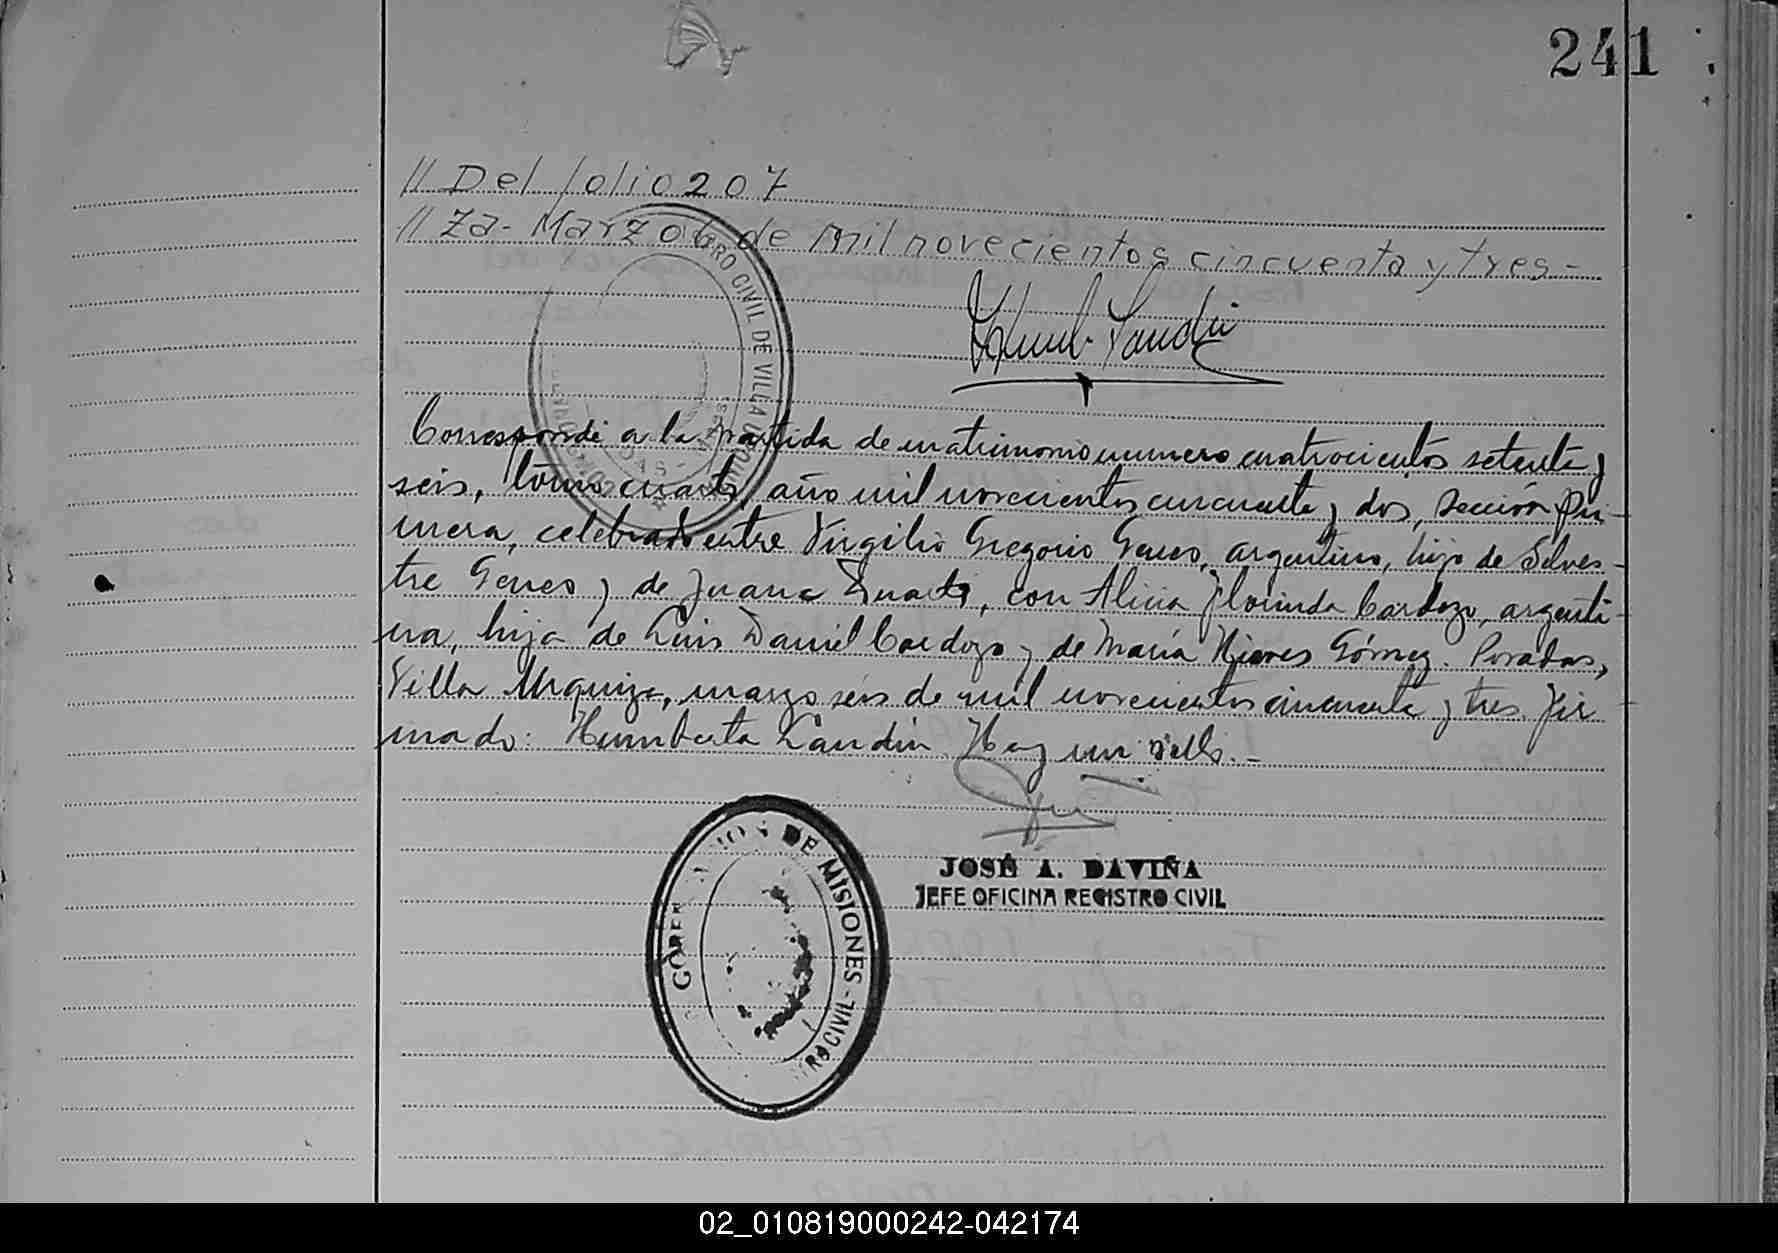 241
// Del folio 207
// za - Marzo 6 de Mil novecientos cincuenta y tres -
Corresponde a la partida de matrimonio numero cuatrocientos setenta y
seis, tomo cuarto, año mil novecientos cincuenta y dos, Sección Pri-
mera, celebrado entre Virgilio Gregorio Genes, argentino, hijo de Silves-
tre Genes y de Juana Duarte, con Alicia Florinda Cardozo, argenti-
na, hija de Luis Daniel Cardozo y de María Nieves Gómez. Posadas,
Villa Urquiza, marzo seis de mil novecientos cincuenta y tres. Fir
mado: Humberto Landín. Hay un sello. -
REGISTRO CIVIL DE VILLA URQUIZA
JOSÉ A. DAVIÑA
JEFE OFICINA REGISTRO CIVIL
DE MISIONES - CIVIL
02_010819000242-042174